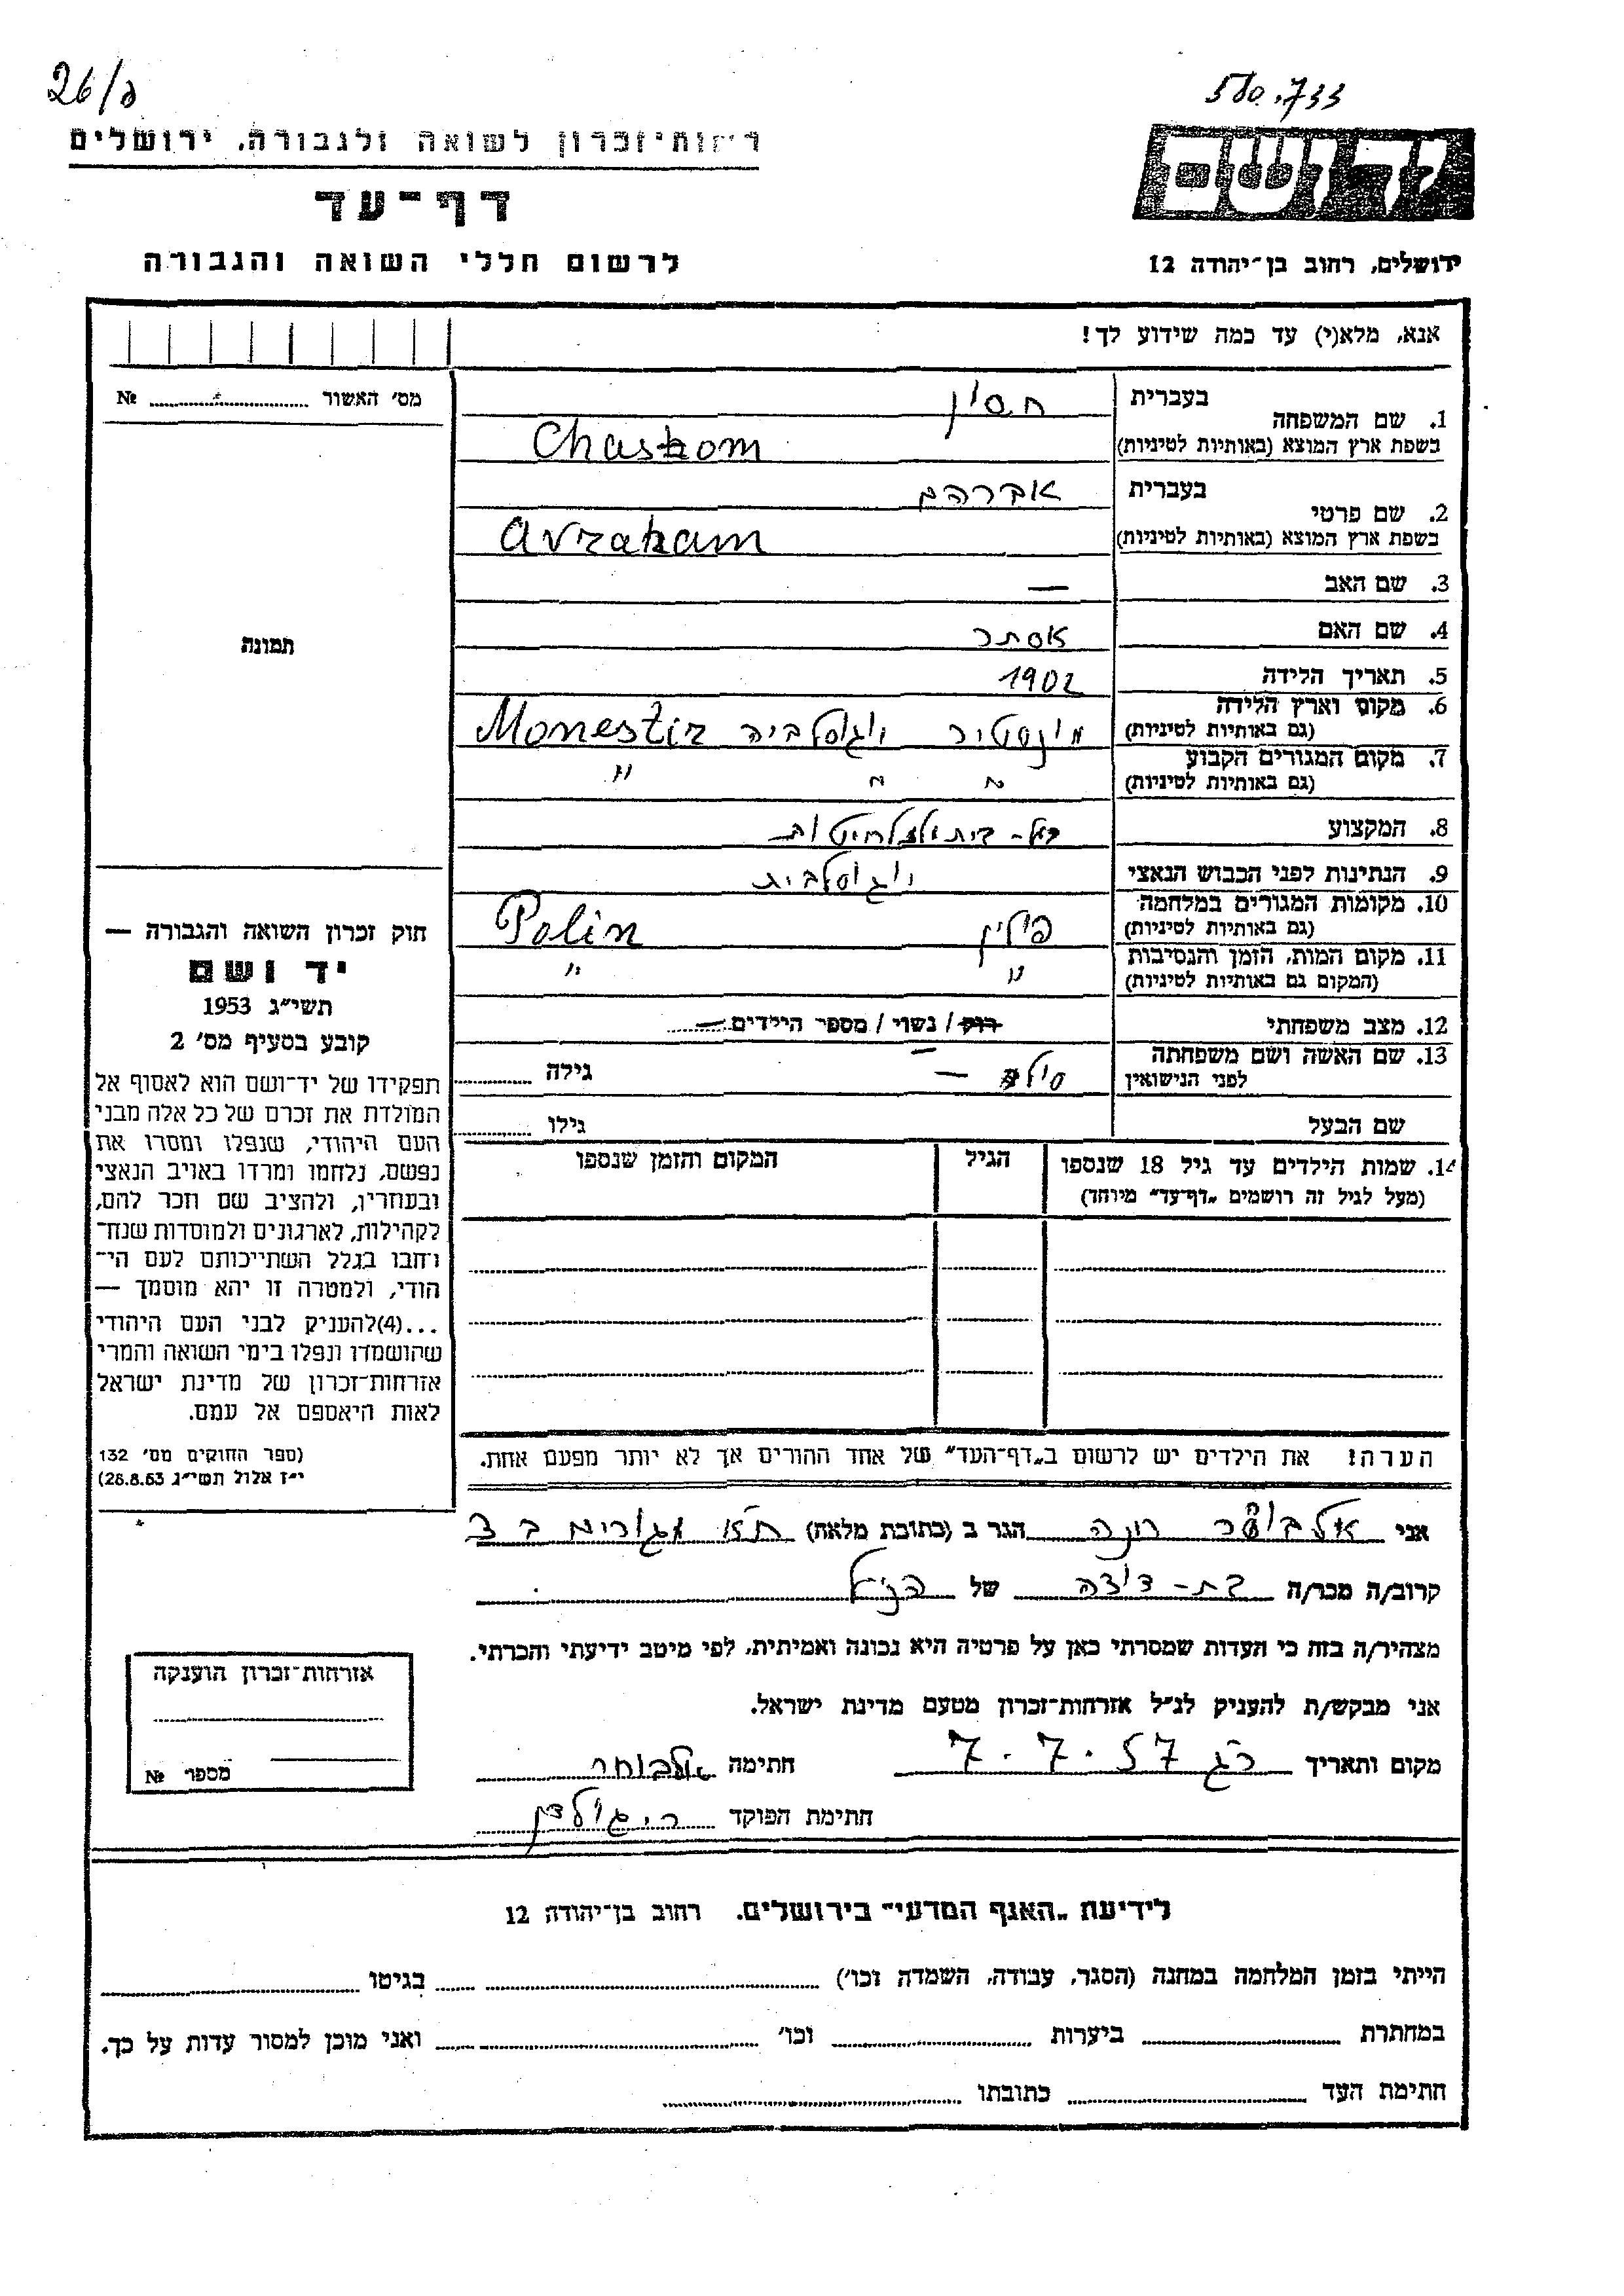 26/ג
580.733
רשות־זכרון לשואה ולגבורה, ירושלים
דף־עד
לרשום חללי השואה והגבורה
יד ושם
ירושלים, רחוב בן־יהודה 12
אנא, מלא(י) עד כמה שידוע לך!
מס׳ האשור № 
תמונה
1. שם המשפחה בעברית חסון
בשפת ארץ המוצא (באותיות לטיניות) Chasson
2. שם פרטי בעברית אברהם
בשפת ארץ המוצא (באותיות לטיניות) Avraham
3. שם האב —
4. שם האם אסתר
5. תאריך הלידה 1902
6. מקום וארץ הלידה מונסטיר יוגוסלביה Monestir
(גם באותיות לטיניות)
7. מקום המגורים הקבוע " " "
(גם באותיות לטיניות)
8. המקצוע בעל-בית
9. הנתינות לפני הכבוש הנאצי יוגוסלבית
10. מקומות המגורים במלחמה פולין Polin
(גם באותיות לטיניות)
11. מקום המות, הזמן והנסיבות " "
(המקום גם באותיות לטיניות)
12. מצב משפחתי רוק / נשוי / מספר הילדים —
13. שם האשה ושם משפחתה — גילה
לפני הנישואין
שם הבעל גילו
14. שמות הילדים עד גיל 18 שנספו הגיל המקום והזמן שנספו
(מעל לגיל זה רושמים „דף־עד״ מיוחד)
הערה! את הילדים יש לרשום ב„דף־העד״ של אחד ההורים אך לא יותר מפעם אחת.
חוק זכרון השואה והגבורה —
יד ושם
תשי״ג 1953
קובע בסעיף מס׳ 2
תפקידו של יד־ושם הוא לאסוף אל
המולדת את זכרם של כל אלה מבני
העם היהודי, שנפלו ומסרו את
נפשם, נלחמו ומרדו באויב הנאצי
ובעוזריו, ולהציב שם וזכר להם,
לקהילות, לארגונים ולמוסדות שנח־
רחבו בגלל השתייכותם לעם הי־
הודי, ולמטרה זו יהא מוסמך —
...(4)להעניק לבני העם היהודי
שהושמדו ונפלו בימי השואה והמרי
אזרחות־זכרון של מדינת ישראל
לאות היאספם אל עמם.
(ספר החוקים מס׳ 132
י״ז אלול תשי״ג 28.8.53)
אני אלבוחר הגר ב (כתובת מלאה) ת״א
קרוב/ה מכר/ה בת-דודה של הנ״ל
מצהיר/ה בזה כי העדות שמסרתי כאן על פרטיה היא נכונה ואמיתית, לפי מיטב ידיעתי והכרתי.
אני מבקש/ת להעניק לנ״ל אזרחות־זכרון מטעם מדינת ישראל.
מקום ותאריך רג 7.7.57 חתימה אלבוחר
חתימת הפוקד ר. גולדין
אזרחות־זכרון הוענקה
מספר №
לידיעת „האגף המדעי״ בירושלים, רחוב בן־יהודה 12
הייתי בזמן המלחמה במחנה (הסגר, עבודה, השמדה וכו׳) בגיטו
במחתרת ביערות וכו׳ ואני מוכן למסור עדות על כך.
חתימת העד כתובתו